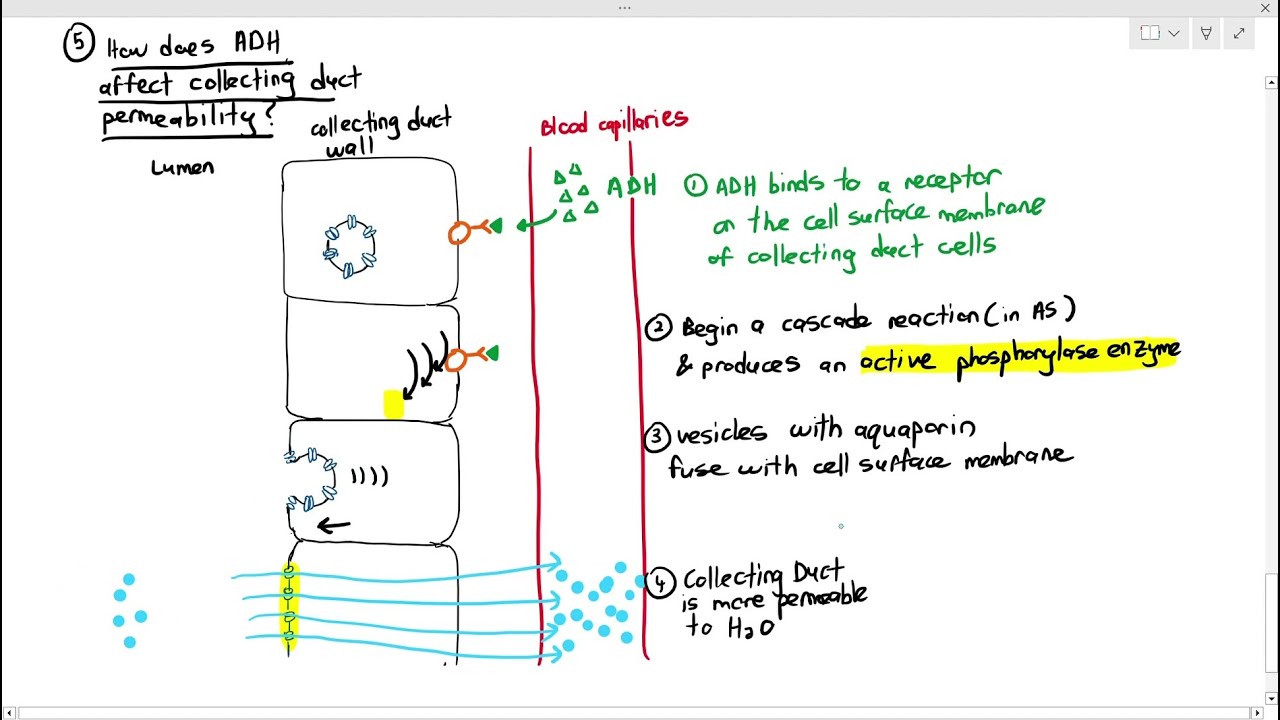 5 How does ADH
affect collecting duct
permeability?
Lumen
collecting duct
wall
Blood capillaries
ADH
1 ADH binds to a receptor
on the cell surface membrane
of collecting duct cells
2 Begin a cascade reaction (in AS)
& produces an active phosphorylase enzyme
3 vesicles with aquaporin
fuse with cell surface membrane
4 Collecting Duct
is more permeable
to H2O